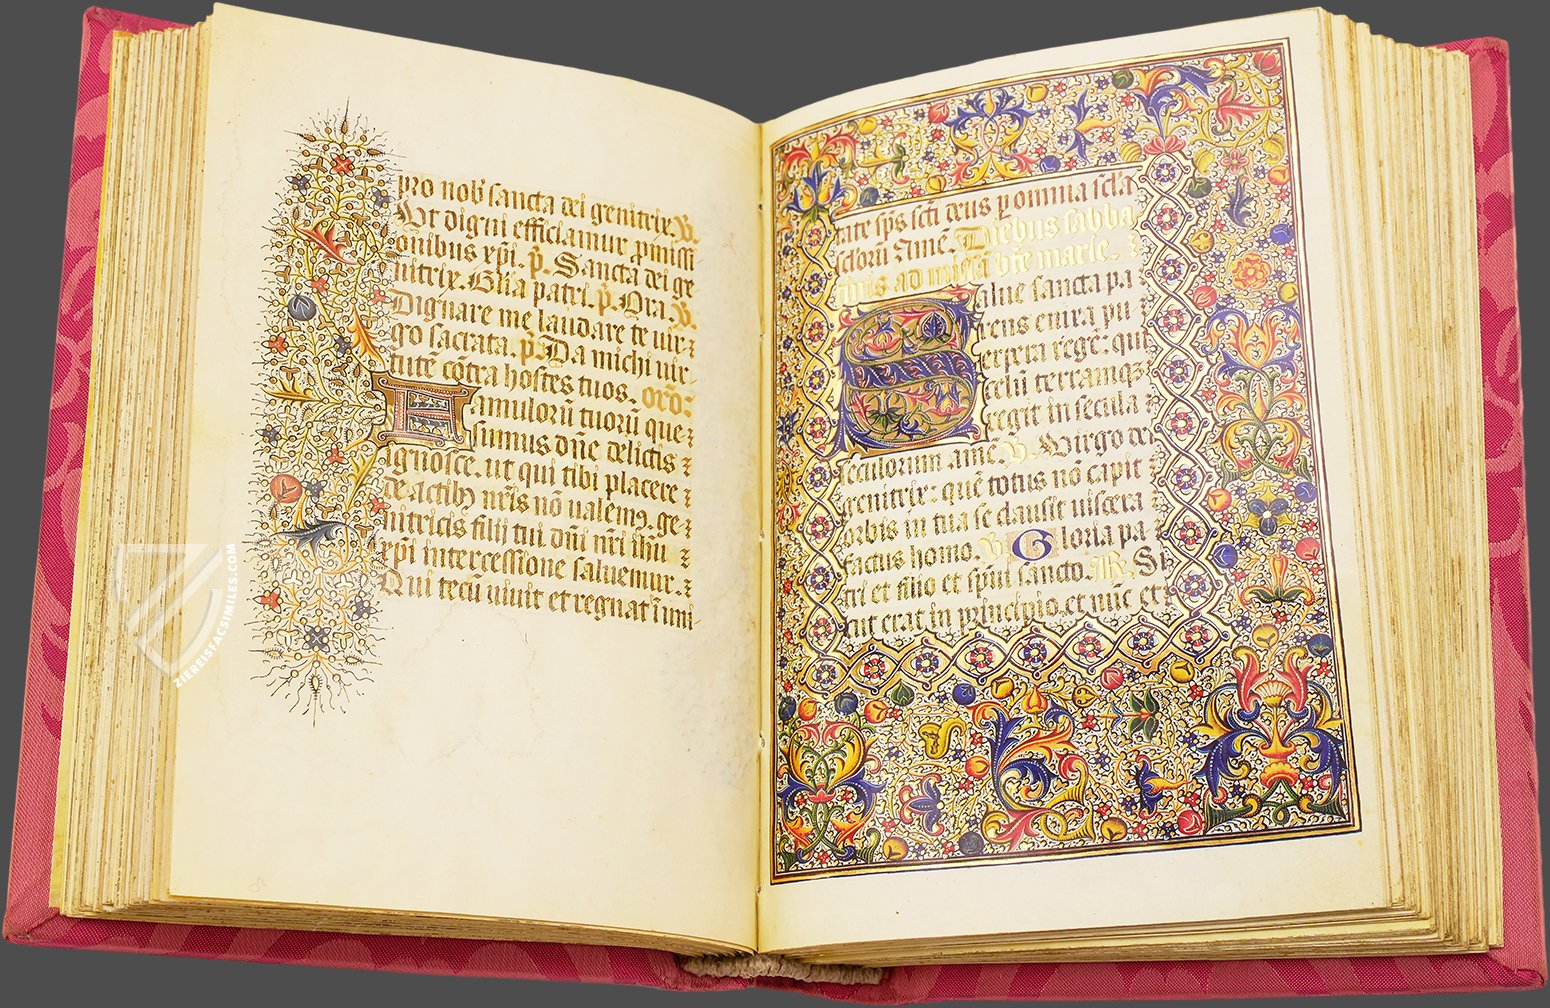 pro nob' sancta dei genitrix. V.
Ut digni efficiamur promissi
onibus xpi. p. Sancta dei ge
nitrix. Glia patri. p. Ora. V.
Dignare me laudare te uir
go sacrata. p. Da michi uir
tutē cōtra hostes tuos. orō:
Famulorū tuorū que
sumus dñe delictis
ignosce. ut qui tibi placere
de actibꝫ nr̄is nō ualemꝰ. ge
nitricis filij tui dñi nr̄i ihu
xpi intercessione saluemur.
Qui tecū uiuit et regnat ī uni
tate sp̄s scti deus p omnia scl'a
sclorū Amē. Diebus sabba
tinis ad missā bte marie.
Salue sancta pa
rens enixa pu
erpera regē: qui
celū terramqꝫ
regit in secula
seculorum amē V. Virgo dei
genitrix: quē totus nō capit
orbis in tua se clausit uiscera
factus homo. V. Gloria pa
tri et filio et spūi sancto. R. Si
cut erat in principio. et nūc et
ZIEREISFACSIMILES.COM